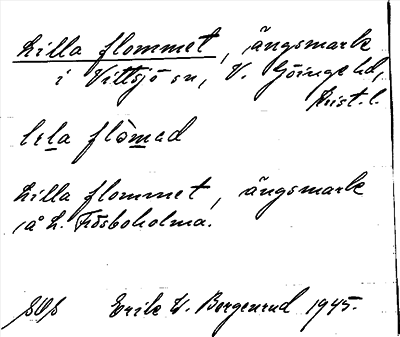 Lilla flommet, ängsmark
i Vittsjö sn, V. Göinge hd,
Krist. l.
lila flòmad
Lilla flommet, ängsmark
å L. Frösboholma.
Erik W. Bergenrud 1945.